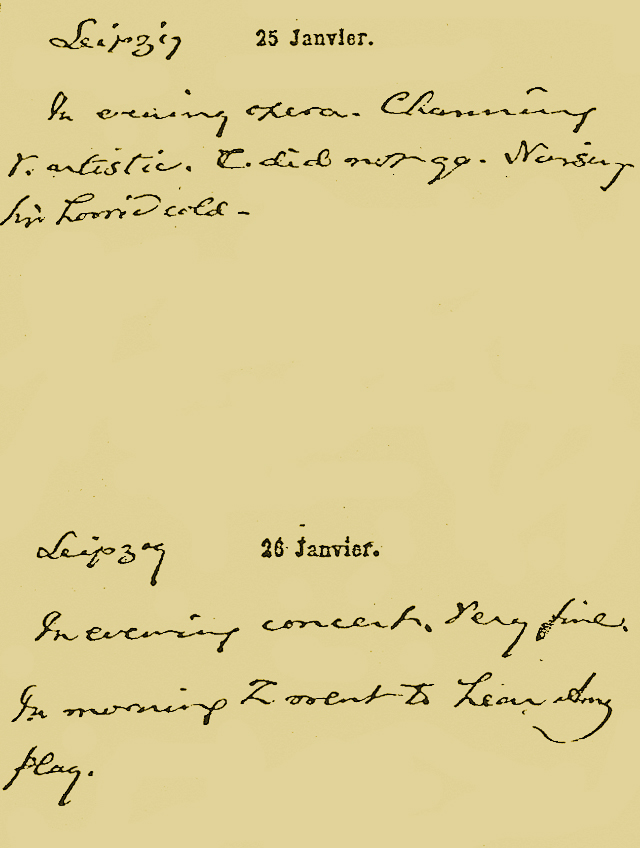 Leipzig 25 Janvier.
In evening opera. Charming
V. artistic. T. did not go. Nursing
his horrid cold -
Leipzig 26 Janvier.
In evening concert. Very fine.
In morning I went to hear Amy
play.